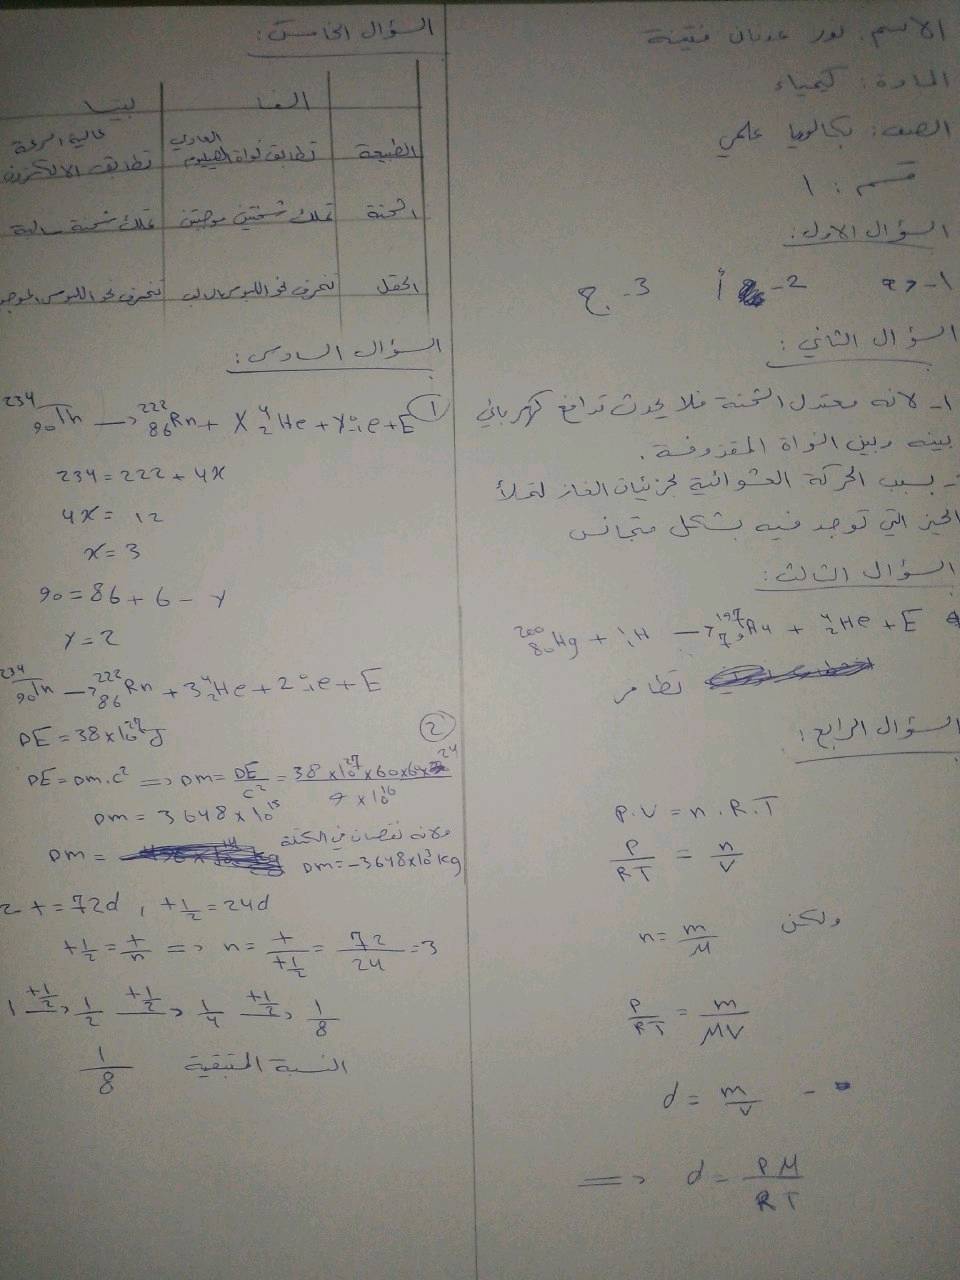 الاسم: نور عدنان
المادة: كيمياء
الصف: بكالوريا علمي
قسم: ١
السؤال الاول:
2- أ 3- ج
السؤال الثاني:
١- لانه معتدل الشحنة فلا يحدث تدافع كهربائي
بينه وبين النواة المقذوفة.
- بسبب الحركة العشوائية لجزيئات الغاز لتملأ
الحيز التي توجد فيه بشكل متجانس
السؤال الثالث:
²⁰⁰₈₀Hg + ¹₁H → ¹⁹⁷₇₉Au + ⁴₂He + E
تطافر
السؤال الرابع:
P.V = n.R.T
P/RT = n/V
ولكن n = m/M
P/RT = m/MV
d = m/V
=> d = PM/RT
السؤال الخامس:
الفا بيتا
الطبيعة تطابق نواة الهيليوم العادي تطابق الالكترون عالية السرعة
الشحنة تملك شحنتين موجبتين تملك شحنة سالبة
الحقل تنحرف نحو اللبوس السالب تنحرف نحو اللبوس الموجب
السؤال السادس:
1 ²³⁴₉₀Th → ²²²₈₆Rn + X ⁴₂He + Y ⁰₋₁e + E
234 = 222 + 4X
4X = 12
x = 3
90 = 86 + 6 - Y
Y = 2
²³⁴₉₀Th → ²²²₈₆Rn + 3 ⁴₂He + 2 ⁰₋₁e + E
2
DE = 38 x 10²⁷ J
DE = Dm.c² => Dm = DE/c² = 38 x 10²⁷ x 60 x 60 x 24 / 9 x 10¹⁶
Dm = 3648 x 10¹³
ولانه نقصان في الكتلة
Dm = Dm = -3648 x 10¹³ kg
2 t = 72d , t½ = 24d
t½ = t/n => n = t/t½ = 72/24 = 3
1 t½→ 1/2 t½→ 1/4 t½→ 1/8
النسبة المتبقية 1/8